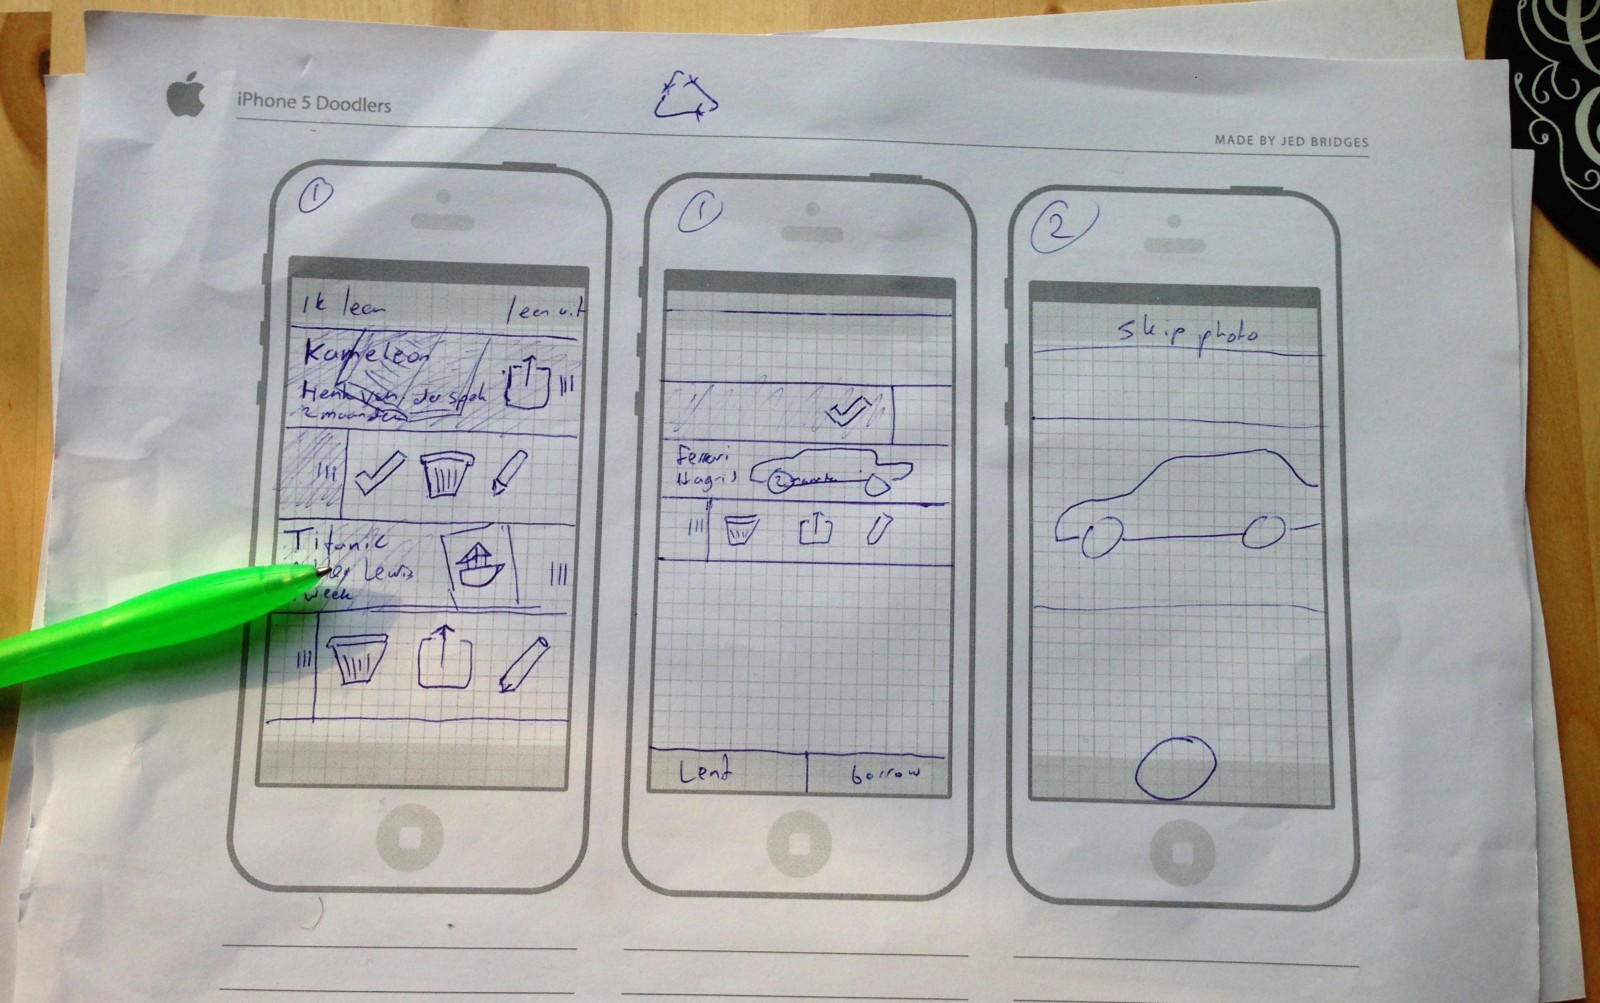 iPhone 5 Doodlers
MADE BY JED BRIDGES
1
ik leen
leen uit
Kameleon
Henk van der Spek
2 maanden
Titanic
Lewis
week
1
Ferrari
Hagrid
2
Lend
borrow
2
Skip photo